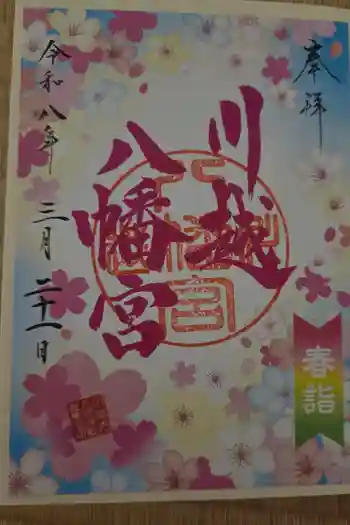 奉拝
川越
八幡宮
令和八年
三月二十一日
春詣